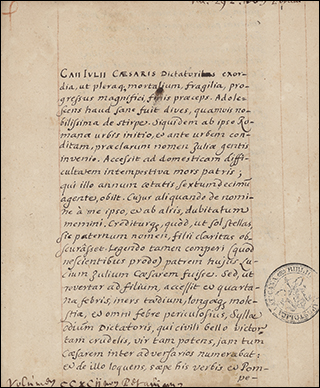 CAII IULII CÆSARIS Dictatoris exor-
dia, ut pleraq, mortalium, fragilia, pro-
gressus magnifici, finis præceps. Adole-
scens haud sane fuit dives, quamvis no-
bilissima de stirpe. Siquidem ab ipso Ro-
mana urbis initio, et ante urbem con-
ditam, præclarum nomen Iuliæ gentis
invenio. Accessit ad domesticam diffi-
cultatem intempestiva mors patris;
qui illo annum ætatis sextumdecimũ
agente, obiit. Cujus aliquando de nomi-
ne à me ipso, et ab aliis, dubitatum
memini. Crediturq, quòd, ut sol stellas,
sic paternum nomen, filii claritas ob-
scurâsset. Legendo tamen comperi (quod
nescientibus prodo) patrem hujus Lu-
cium Iulium Cæsarem fuisse. Sed, ut
revertar ad filium, accessit et quarta-
na febris, iners tædium, longæq, mole-
stia, et omni febre periculosius, Syllæ
odium Dictatoris, qui civili bello victor,
tam crudelis, vir tam potens, jam tum
Cæsarem inter adversarios numerabat:
et de illo loquens, sæpe his verbis et Pom-
pe-